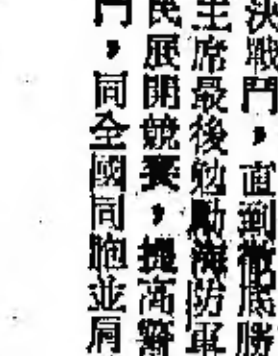 決戰鬥，直到徹底勝
主席最後勉勵海防軍
民展開競賽，提高警
鬥，同全國同胞並肩